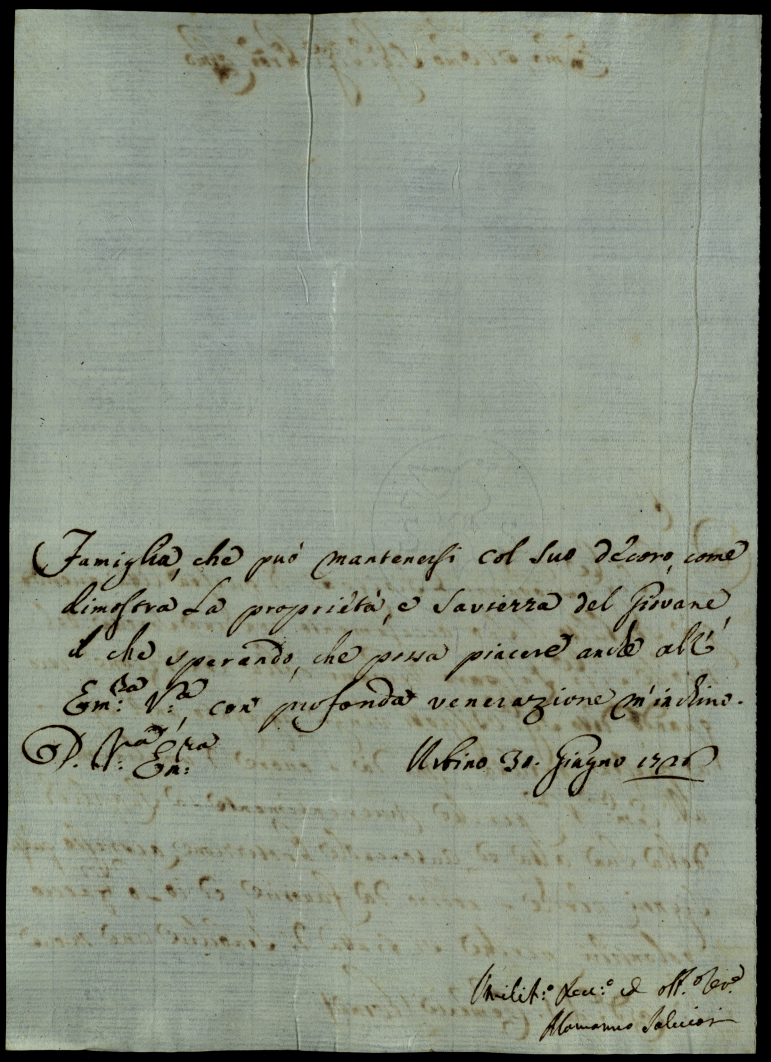 Famiglia, che può mantenersi col suo decoro, come
dimostra La proprietà, e saviezza del Giovane,
il che sperando, che possa piacere anche all'
Em:za V:a con profonda venerazione m'inchino.
D. V:a Em:za Urbino 30. Giugno 1726
Umilit:o ed
Alamanno Salviati